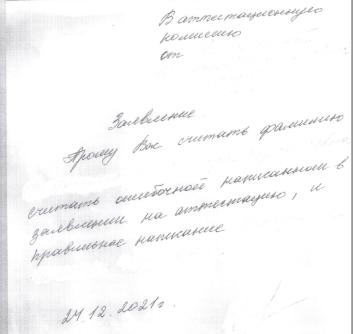 В аттитационную
комиссию
от
Заявление
Прошу Вас считать фамилию
считать ошибочной написанном в
заявлении на аттестацию, и
правильное написание
24.12.2021г.